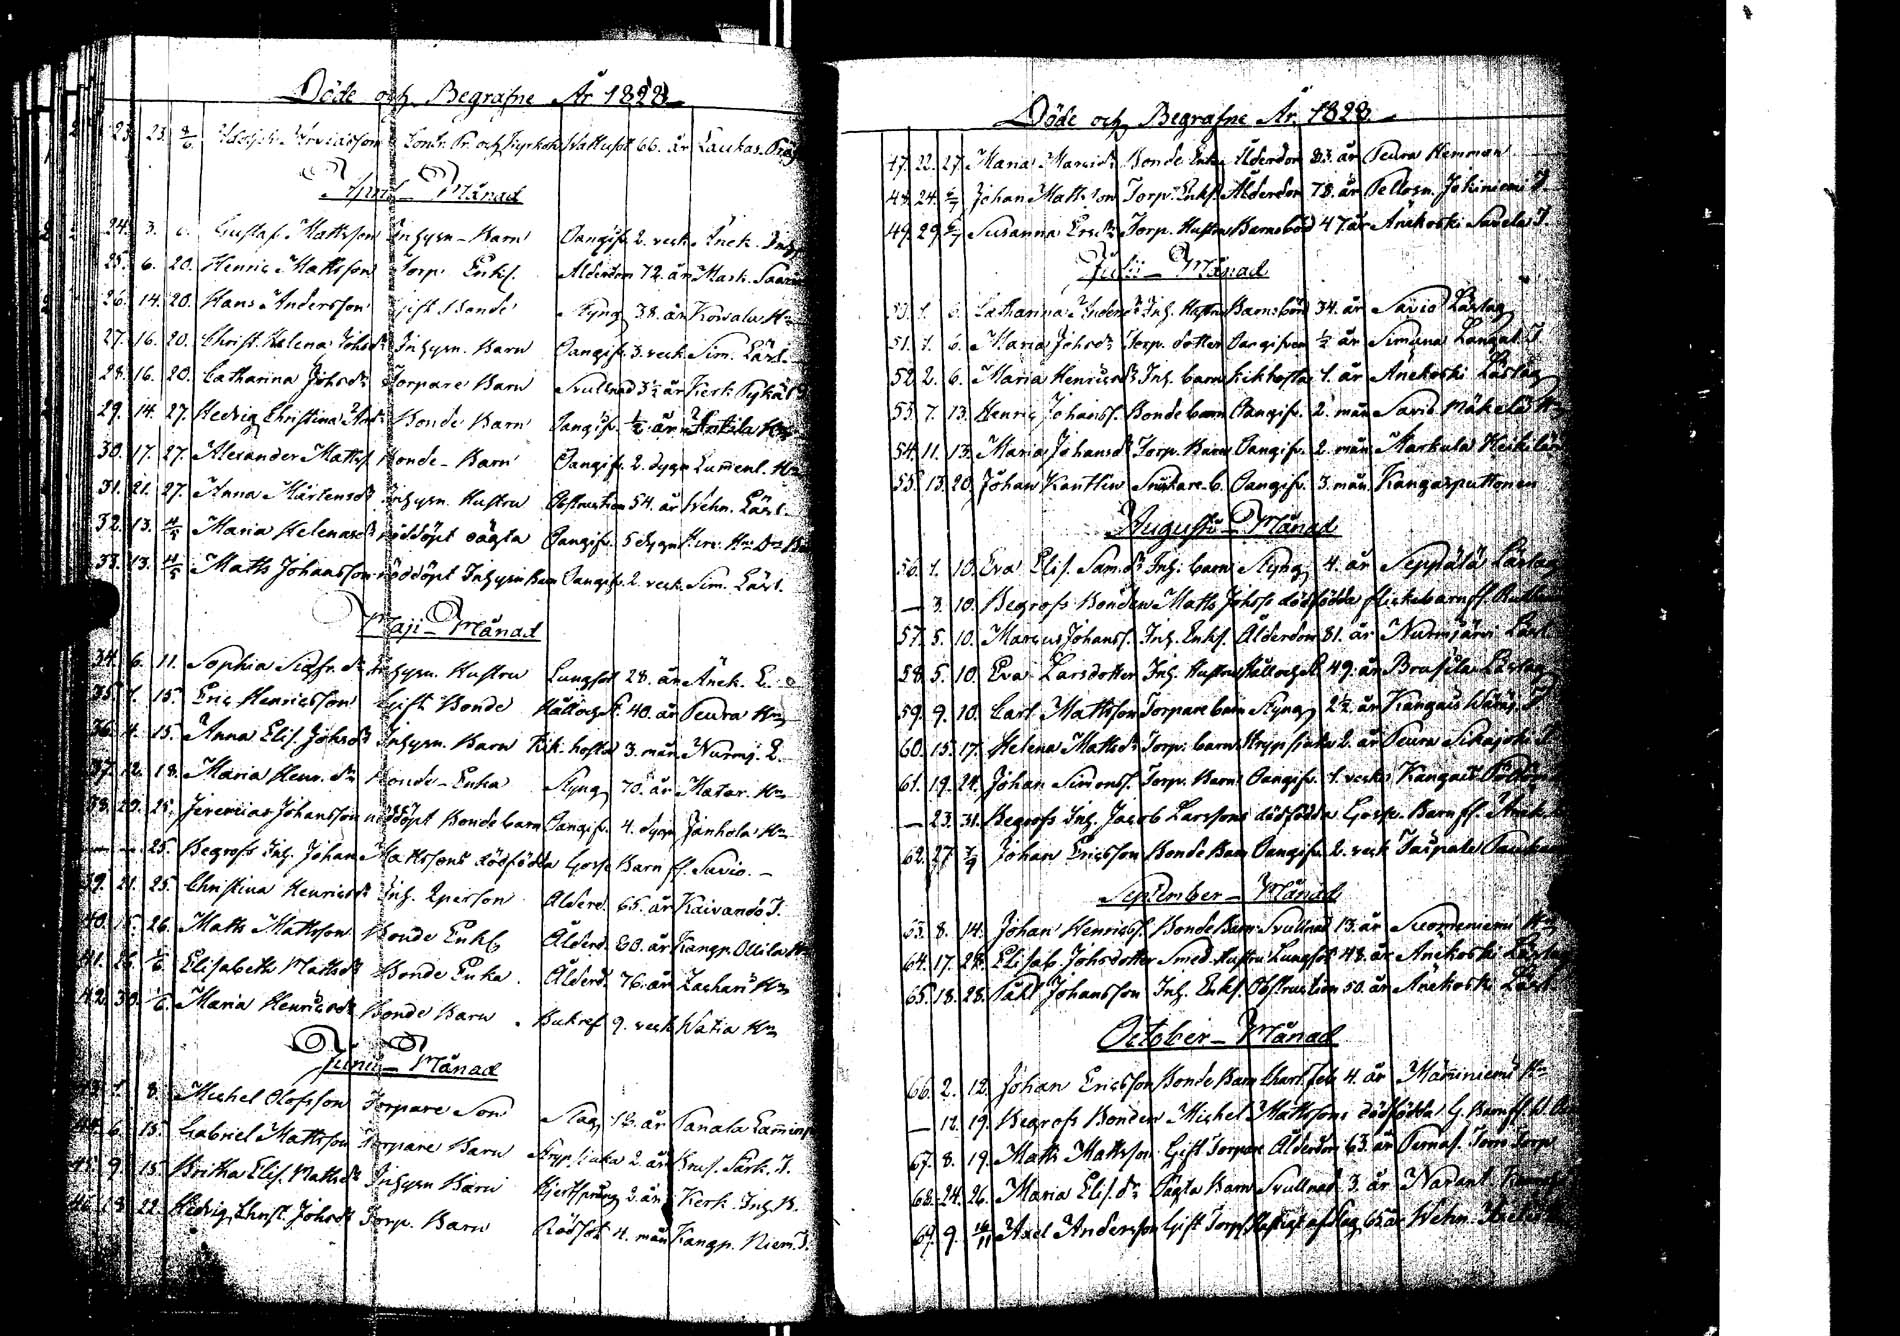 Döde och Begrafne År 1828
23. 23. 8/6 Contr. Pr. och Kyrkoh. Wattusot 66. år Laukas
April Månad
24. 3. Gustaf Mattsson Inhysn - Barn Oangifv. 2. veck. Änek. Inhys
25. 6. 20. Henric Mattsson Torp. Enkl. Ålderdom 72. år Mask.
26. 14. 20. Hans Andersson Gift Bonde Styng 38. år Koivula Hn
27. 16. 20. Christ. Helena Johsdr Inhysn. Barn Oangifv. 3. veck. Sim. Läst.
28. 16. 20. Catharina Johsdr Torpare Barn Svullnad 3½ år Kerk.
29. 14. 27. Hedvig Christina Bonde Barn Oangifv. ½ år Anttila Hn
30. 17. 27. Alexander Mattss. Bonde - Barn Oangifv. 2. dygn Lumenl. Hn
31. 21. 27. Anna Mårtensdr Inhysn. Hustru Obstruction 54. år Wehn. Läst.
32. 13. 4/5 Maria Helenasdr nöddöpt oägta Oangifv. 5 dygn
33. 13. 4/5 Matts Johansson nöddöpt Inhysn Barn Oangifv. 2. veck. Sim. Läst.
Maji - Månad
34. 6. 11. Sophia Sigfr. dr Inhysn. Hustru Lungsot 28. år Änek. L.
35. 1. 15. Eric Henricsson Gift Bonde Håll och St. 40. år Peura Hn
36. 4. 15. Anna Elis. Johsdr Inhysn. Barn Kik hosta 3. mån Nurmj. L.
37. 12. 18. Maria Henr. dr Bonde - Enka Styng 70. år Matar. Hn
38. 20. 25. Jeremias Johansson nöddöpt Bonde barn Oangifv. 4. dygn Janhola Hn
— — 25. Begrofs Inh. Johan Mattssons dödfödda Gosse Barn ff. Savio. —
39. 21. 25. Christina Henricsdr Inh. Qperson Ålderd. 65. år Kaivando T.
40. 15. 26. Matts Mattsson Bonde Enkl. Ålderd. 80. år Kangp. Ollila Hn
41. 26. 1/6 Elisabeth Mattsdr Bonde Enka. Ålderd. 76. år Zachari Hn
42. 30. 1/6. Maria Henricsdr Bonde Barn Bukref 9. veck Watia Hn
Junii - Månad
43. 1. 8. Michel Olofsson Torpare Son Slag 12. år Tanala
44. 6. 15. Gabriel Mattsson Torpare Barn Stryp sjuka 2. år
45. 9. 15. Britha Elis. Mattsdr Inhysn Barn Hjertsprång 2. år Kerk. Inh. B.
46. 18. 22. Hedvig Christ. Johsdr Torp. Barn Rödsot 4. mån Kangp. Niem. T.
Döde och Begrafne År 1828
47. 22. 27. Maria Marcidr Bonde Enka Ålderdom 83. år Peura Hemman
48. 24. Johan Mattsson Torp. Enkl. Ålderdom 78. år Pellosn. Jokiniemi T.
49. 29. Susanna Ersdr Torp. Hustru Barnsbörd 47. år Änekoski Savela T.
Julii - Månad
50. 1. 6. Catharina Andersdr Inh. Hustru Barnsbörd 34. år Savio Lästag
51. 1. 6. Maria Johsdr Torp. dotter Oangifven ½ år Simuna T.
52. 2. 6. Maria Henricsdr Inh. barn Kikhosta 1. år Änekoski Lästag
53. 7. 13. Henric Johanss. Bonde barn Oangifv. 2. mån Savio Mäkelä Hn
54. 11. 13. Maria Johansdr Torp. Barn Oangifv. 2. mån Markula
55. 13. 20. Johan Kantlin Snickare b. Oangifv. 3. mån. Kangasputtonen
Augusti - Månad
56. 1. 10. Eva Elis. Sam.dr Inh. barn Styng 4. år Seppälä Lästag
— 3. 10. Begrofs Bonden Matts Johss dödfödda flickebarn ff.
57. 5. 10. Marcus Johanss. Inh. Enkl. Ålderdom 81. år Nurmijärvi Läst
58. 5. 10. Eva Larsdotter Inh. Hustru Håll och St. 49. år Lästag
59. 9. 10. Carl Mattsson Torpare barn Styng 2½ år Kangais
60. 15. 17. Helena Mattsdr Torp. barn Strypsjuka 2. år Peura
61. 19. 24. Johan Simonss. Torp. Barn Oangifv. 1. vecka Kangais
— 23. 31. Begrofs Inh. Jacob Larssons dödfödda Gosse Barn ff. Änek
62. 27 7/9 Johan Ericsson Bonde Barn Oangifv. 2. veck
September - Månad
63. 8. 14. Johan Henricss. Bonde Barn Svullnad 13. år Suojoniemi Hn
64. 17. 28. Elisab. Johsdotter Smed. Hustru Lungsot 48. år Änekoski Lästag
65. 18. 28. Påhl Johansson Inh. Enkl. Obstruction 50. år Änekoski Läst
October - Månad
66. 2. 12. Johan Ericsson Bonde Barn Charl feb. 4. år Mämniemi Hn
— 12. 19. Begrofs Bonden Michel Mattssons dödfödda G. Barn ff.
67. 8. 19. Matts Mattsson Gift Torpare Ålderdom 63. år Torp
68. 24. 26. Maria Elis. dr Oägta Barn Svullnad 3. år
69. 9. 16/11 Axel Andersson Gift Torp. Hastigt af slag 65. år Wehn.